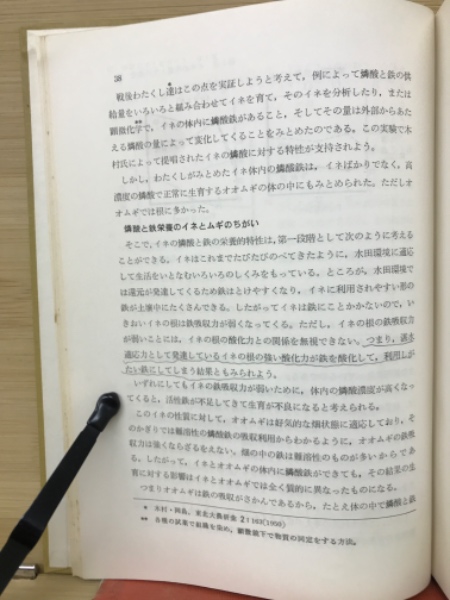 38
戦後わたくし達*はこの点を実証しようと考えて，例によって燐酸と鉄の供
給量をいろいろと組み合わせてイネを育て，そのイネを分析したり，または
顕微化学**で，イネの体内に燐酸鉄があること，そしてその量は外部からあた
える燐酸の量によって変化してくることをみとめたのである。この実験で木
村氏によって提唱されたイネの燐酸に対する特性が支持されよう。
しかし，わたくしがみとめたイネ体内の燐酸鉄は，イネばかりでなく，高
濃度の燐酸で正常に生育するオオムギの体の中にもみとめられた。ただしオ
オムギでは根に多かった。
燐酸と鉄栄養のイネとムギのちがい
そこで，イネの燐酸と鉄の栄養的特性は，第一段階として次のように考える
ことができる。イネはこれまでたびたびのべてきたように，水田環境に適応
して生活をいとなむいろいろのしくみをもっている。ところが，水田環境で
は還元が発達してくるため鉄はとけやすくなり，イネに利用されやすい形の
鉄が土壌中にたくさんできる。したがってイネは鉄にことかかないので，い
きおいイネの根は鉄吸収力が弱くなってくる。ただし，イネの根の鉄吸収力
が弱いことには，イネの根の酸化力との関係を無視できない。つまり，湛水
適応力として発達しているイネの根の強い酸化力が鉄を酸化して，利用しが
たい鉄にしてしまう結果ともみられよう。
いずれにしてもイネの鉄吸収力が弱いために，体内の燐酸濃度が高くなっ
てくると，活性鉄が不足してきて生育が不良になると考えられる。
このイネの性質に対して，オオムギは好気的な畑状態に適応しており，そ
のかぎりでは難溶性の燐酸鉄の吸収利用からわかるように，オオムギの鉄吸
収力は強くならざるをえない。畑の中の鉄は難溶性のものが多いからであ
る。したがって，イネとオオムギの体内に燐酸鉄ができても，その結果の生
育に対する影響はイネとオオムギでは全く質的に異なったものになる。
つまりオオムギは鉄の吸収がさかんであるから，たとえ体の中で燐酸と鉄
* 木村・岡島，東北大農研彙 2：163(1950)
** 各種の試薬で組織を染め，顕微鏡下で物質の同定をする方法。